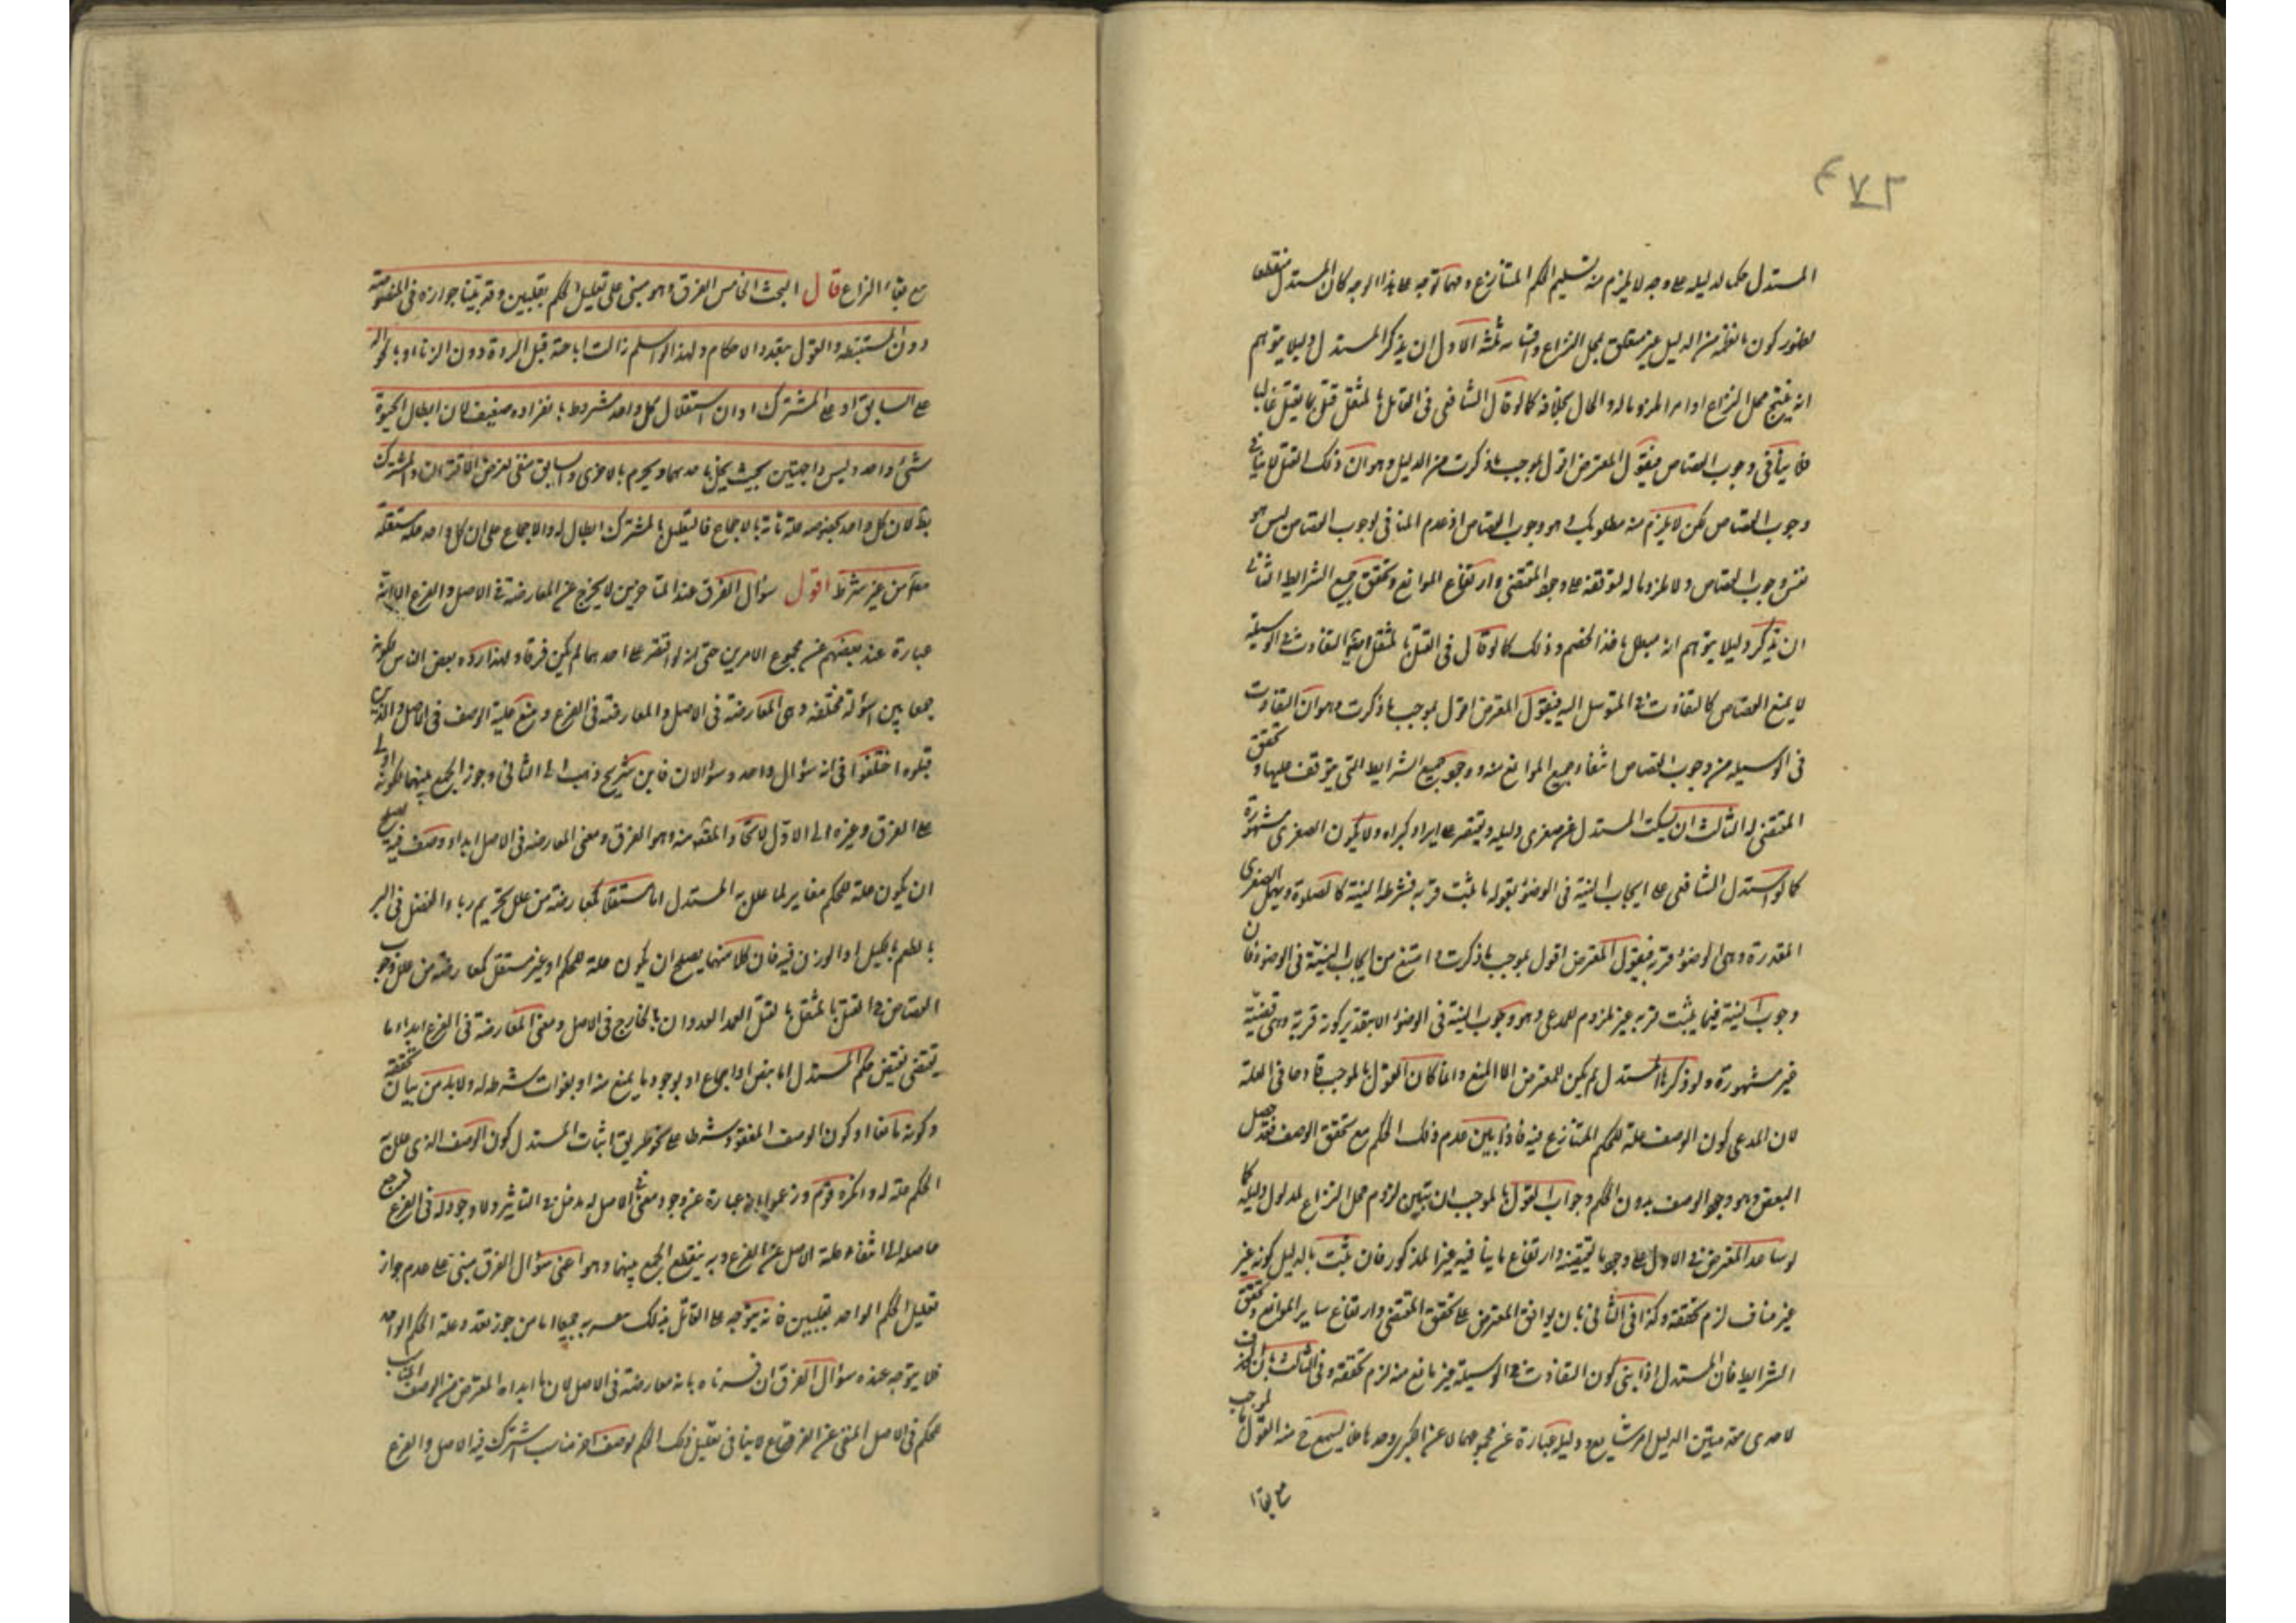 ٤٧٢
المستدل حكما لدليله على وجه لا يلزم منه تسليم الحكم المتنازع ومهما توجه على هذا الوجه كان المستدل منقطعا
لظهور كون ما نصبه من الدليل غير متعلق بمحل النزاع واقسامه ثلثة الاول ان يذكر المستدل دليلا يتوهم
انه ينتج محل النزاع او امرا ملزوما له والحال بخلافه كما لو قال الشافعي في القاتل بالمثقل قتل بما يقتل غالبا
فلا ينافي وجوب القصاص فيقول المعترض اقول بموجب ما ذكرت من الدليل وهو ان ذلك القتل لا ينافي
وجوب القصاص لكن لا يلزم منه مطلوبك وهو وجوب القصاص اذ عدم المنافي لوجوب القصاص ليس هو
نفس وجوب القصاص ولا ملزوما له لتوقفه على وجود المقتضي وارتفاع الموانع وتحقق جميع الشرايط الثاني
ان يذكر دليلا يتوهم انه مبطل مأخذ الخصم وذلك كما لو قال في القتل بالمثقل ايضا التفاوت في الوسيلة
لا يمنع القصاص كالتفاوت في المتوسل اليه فيقول المعترض اقول بموجب ما ذكرت وهو ان التفاوت
في الوسيلة من وجوب القصاص انتفاء جميع الموانع منه ووجود جميع الشرايط التي يتوقف عليها وتحقق
المقتضي له الثالث ان يسكت المستدل عن صغرى دليله ويقتصر على ايراد كبراه ولا يكون الصغرى مشهورة
كما لو استدل الشافعي على ايجاب النية في الوضوء بقوله ما ثبت قربة فشرطه النية كالصلوة ويهمل الصغرى
المقدرة وهي الوضوء قربة فيقول المعترض اقول بموجب ما ذكرت وامتنع من ايجاب النية في الوضوء فان
وجوب النية فيما يثبت قربة غير ملزوم للمدعى وهو وجوب النية في الوضوء الا بتقدير كونه قربة وهي قضية
غير مشهورة ولو ذكرها المستدل لم يكن للمعترض الا المنع وانما كان القول بالموجب قادحا في العلة
لان المدعى كون الوصف علة للحكم المتنازع فيه فاذا بين عدم ذلك الحكم مع تحقق الوصف فقد حصل
النقض وهو وجود الوصف بدون الحكم وجواب القول بالموجب ان يتبين لزوم محل النزاع لمدلول دليله كما
لو ساعد المعترض في الاول على وجود ما يقتضيه وارتفاع ما ينافيه غير المذكور فان يثبت بالدليل كونه غير
غير مناف لزم تحققه وكذا في الثاني بان يوافق المعترض على تحقق المقتضي وارتفاع ساير الموانع وتحقق
الشرايط فان المستدل اذا بين كون التفاوت في الوسيلة غير مانع منه لزم تحققه وفي الثالث بان الحذف
لاحدى مقدمتين الدليل امر شايع ودليله عبارة عن مجموعهما لا عن الكبرى وحدها فلا يسمع ح منه القول بالموجب
مع بقاء
مع بقاء النزاع قال البحث الخامس الفرق وهو مبني على تعليل الحكم بعلتين وقد بينا جوازه في المنصوصة
دون المستنبطة والقول بتعدد الاحكام ولهذا لو اسلم زالت اباحة قتل الردة دون الزنا او باحالة
على السابق او على المشترك او ان استقلال كل واحد مشروط بانفراده ضعيف لان ابطال الحيوة
شيء واحد وليس واجبتين بحيث يحل باحدهما ويحرم بالاخرى والسابق منفي لفرض الاقتران والمشترك
بط لان كل واحد بخصوصه علة تامة بالاجماع فالتعليل بالمشترك ابطال له والاجماع على ان كل واحد علة مستقلة
معا من غير شرط اقول سؤال الفرق عند المتاخرين لا يخرج عن المعارضة في الاصل والفرع الا انه
عبارة عند بعضهم عن مجموع الامرين حتى انه لو اقتصر على احدهما لم يكن فرقا ولهذا رده بعض الناس لكونه
جمعا بين اسؤلة مختلفة وهي المعارضة في الاصل والمعارضة في الفرع ومنع علية الوصف في الاصل والذين
قبلوه اختلفوا في انه سؤال واحد وسؤالان فابن شريح ذهب الى الثاني وجوز الجمع بينهما لكونه ادل
على الفرق وغيره الى الاول لاتحاد المقصد منه وهو الفرق ومعنى المعارضة في الاصل ابداء وصف فيه يصلح
ان يكون علة للحكم مغاير لما علل به المستدل اما مستقلا كمعارضة من علل تحريم رباء الفضل في البر
بالطعم بالكيل او الوزن فيه فان كلا منهما يصلح ان يكون علة للحكم او غير مستقل كمعارضة من علل وجوب
القصاص في القتل بالمثقل بالقتل العمد العدوان بالخارج في الاصل ومعنى المعارضة في الفرع ابداء ما
يقتضي نقيض حكم المستدل اما بنص او اجماع او بوجود ما يمنع منه او بفوات شرط له ولا بد من بيان تحققه
وكونه مانعا او كون الوصف المفقود شرطا على نحو طريق اثبات المستدل كون الوصف الذي علل به
الحكم علة له وانكره قوم وزعموا انه عبارة عن وجود معنى في الاصل له مدخل في التاثير ولا وجود له في الفرع فرجع
حاصله الى انتفاء علة الاصل عن الفرع وبه ينقطع الجمع بينهما وهو اعني سؤال الفرق مبني على عدم جواز
تعليل الحكم الواحد بعلتين فانه يتوجه على القائل بذلك تفسيريه جميعا اما من جوز تعدد علة الحكم الواحد
فلا يتوجه عنده سؤال الفرق ان فسرناه بانه معارضة في الاصل لان ما ابداه المعترض من الوصف المناسب
للحكم في الاصل المنفي عن الفرع لا ينافي تعليل ذلك الحكم بوصف اخر مناسب اشترك فيه الاصل والفرع